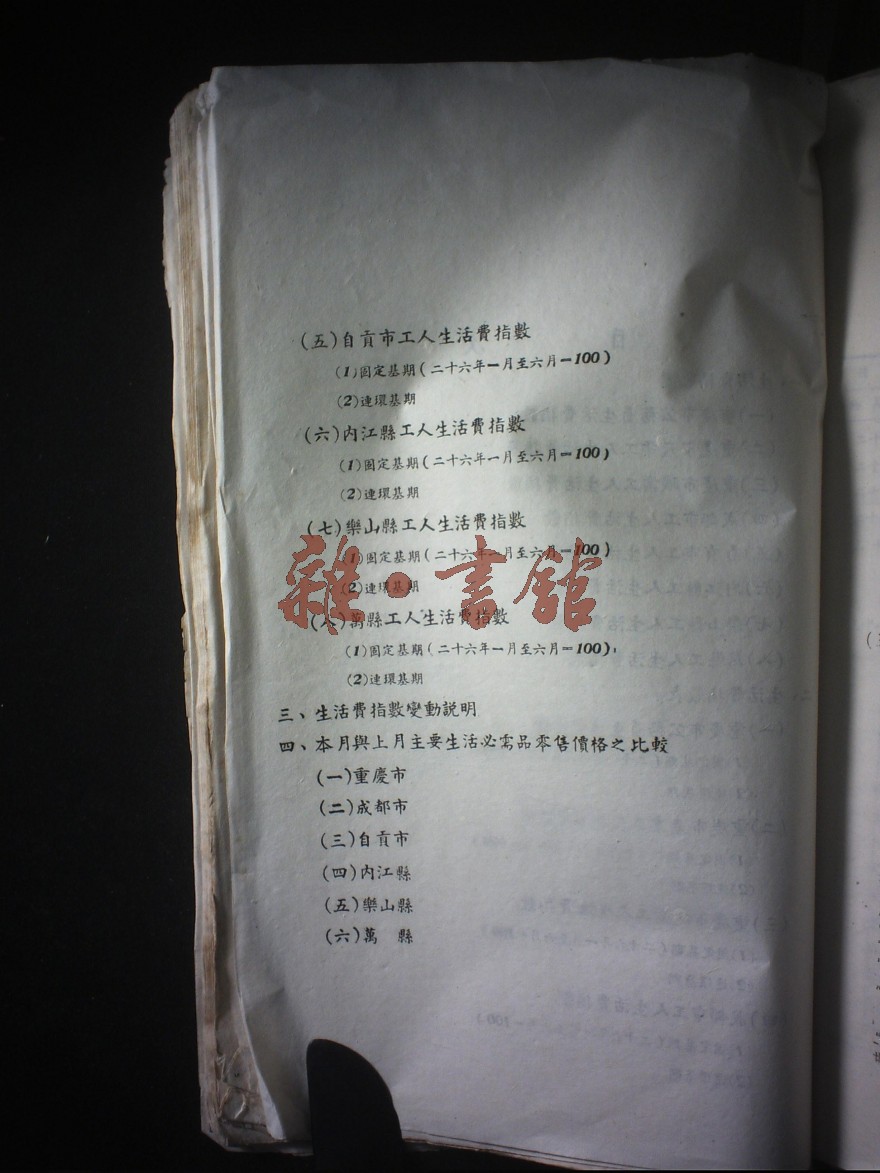 (五)自貢市工人生活費指數
(1)固定基期(二十六年一月至六月=100)
(2)連環基期
(六)内江縣工人生活費指數
(1)固定基期(二十六年一月至六月=100)
(2)連環基期
(七)樂山縣工人生活費指數
(1)固定基期(二十六年一月至六月=100)
(2)連環基期
(八)萬縣工人生活費指數
(1)固定基期(二十六年一月至六月=100)
(2)連環基期
三、生活費指數變動説明
四、本月與上月主要生活必需品零售價格之比較
(一)重慶市
(二)成都市
(三)自貢市
(四)内江縣
(五)樂山縣
(六)萬 縣
雜·書館